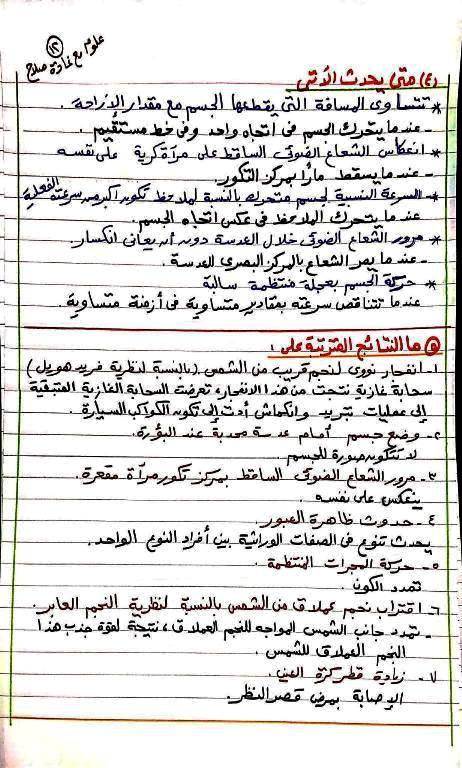 علوم مع غادة صلاح
(١٢)
(٤) متى يحدث الآتى
* تتساوى المسافة التى يقطعها الجسم مع مقدار الإزاحة.
- عندما يتحرك الجسم فى اتجاه واحد وفى خط مستقيم.
* انعكاس الشعاع الضوئى الساقط على مرآة كرية على نفسه
- عندما يسقط مارًا بمركز التكور.
* السرعة النسبية لجسم متحرك بالنسبة لملاحظ تكون أكبر من سرعته الفعلية
عندما يتحرك الملاحظ فى عكس اتجاه الجسم.
* مرور الشعاع الضوئى خلال العدسة دون أن يعانى انكسار.
- عندما يمر الشعاع بالمركز البصرى للعدسة.
* حركة الجسم بعجلة منتظمة سالبة
عندما تتناقص سرعته بمقادير متساوية فى أزمنة متساوية.
(٥) ما النتائج المترتبة على:
١- انفجار نووى لنجم قريب من الشمس (بالنسبة لنظرية فريد هويل)
سحابة غازية نتجت من هذا الانفجار، تعرضت السحابة الغازية المتبقية
إلى عمليات تبريد وانكماش أدت إلى تكون الكواكب السيارة.
٢- وضع جسم أمام عدسة محدبة عند البؤرة.
لا تتكون صورة للجسم.
٣- مرور الشعاع الضوئى الساقط بمركز تكور مرآة مقعرة.
ينعكس على نفسه.
٤- حدوث ظاهرة العبور.
يحدث تنوع فى الصفات الوراثية بين أفراد النوع الواحد.
٥- حركة المجرات المنتظمة.
تمدد الكون.
٦- اقتراب نجم عملاق من الشمس بالنسبة لنظرية النجم العابر.
- تمدد جانب الشمس المواجه للنجم العملاق، نتيجة لقوة جذب هذا
النجم العملاق للشمس.
٧- زيادة قطر كرة العين.
الإصابة بمرض قصر النظر.